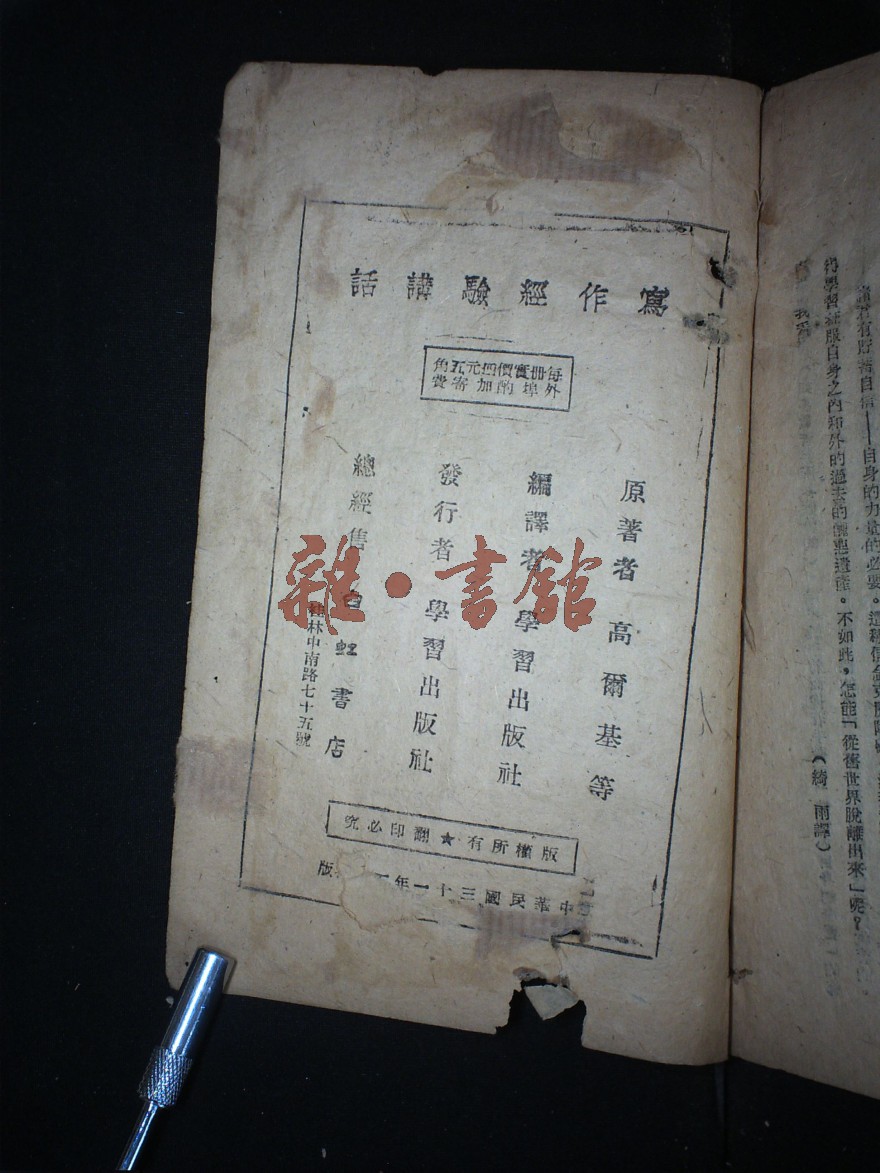 寫作經驗講話
每冊實價四元五角
外埠酌加寄費
原著者 高爾基等
編譯者 學習出版社
發行者 學習出版社
總經售 白虹書店
桂林中南路七十五號
版權所有★翻印必究
中華民國三十一年
版
雜·書館
自身的力量的必要。
學習征服自身之內和外的過去的
遺產。不如此,怎能「從舊世界脫離出來」呢?
(綺雨譯)